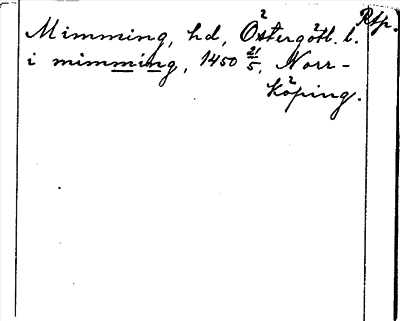 Rtp.
Mimming, hd, Östergötl. l.
i mimming, 1450 21/5, Norr-
köping.